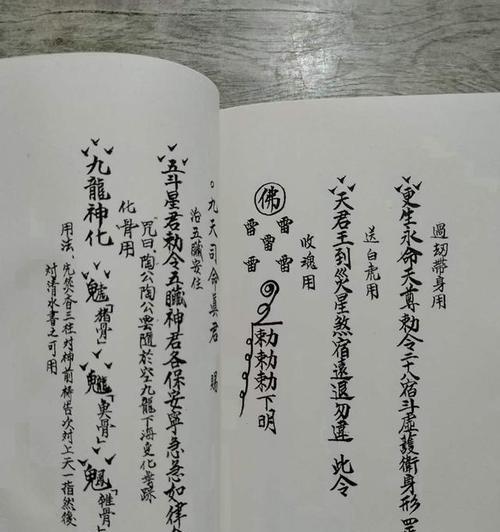 過刧帶身用
更生永命天尊勅令二十八宿斗虛護衛身形罡
送白虎用
天君王到災星煞宿遠退勿違 此令
收魂用
佛
雷 雷
雷
雷 雷
勅勅勅下明
九天司命真君 賜
治五臟安住
五斗星君勅令五臟神君各保安寧急急如律令
咒曰陶公陶公雲隨於空九龍下海
化骨用
九龍神化
「猪骨」
「魚骨」
「雞骨」
用法、先焚香三柱對神前禱告次對上天一指然後
對清水書之可用